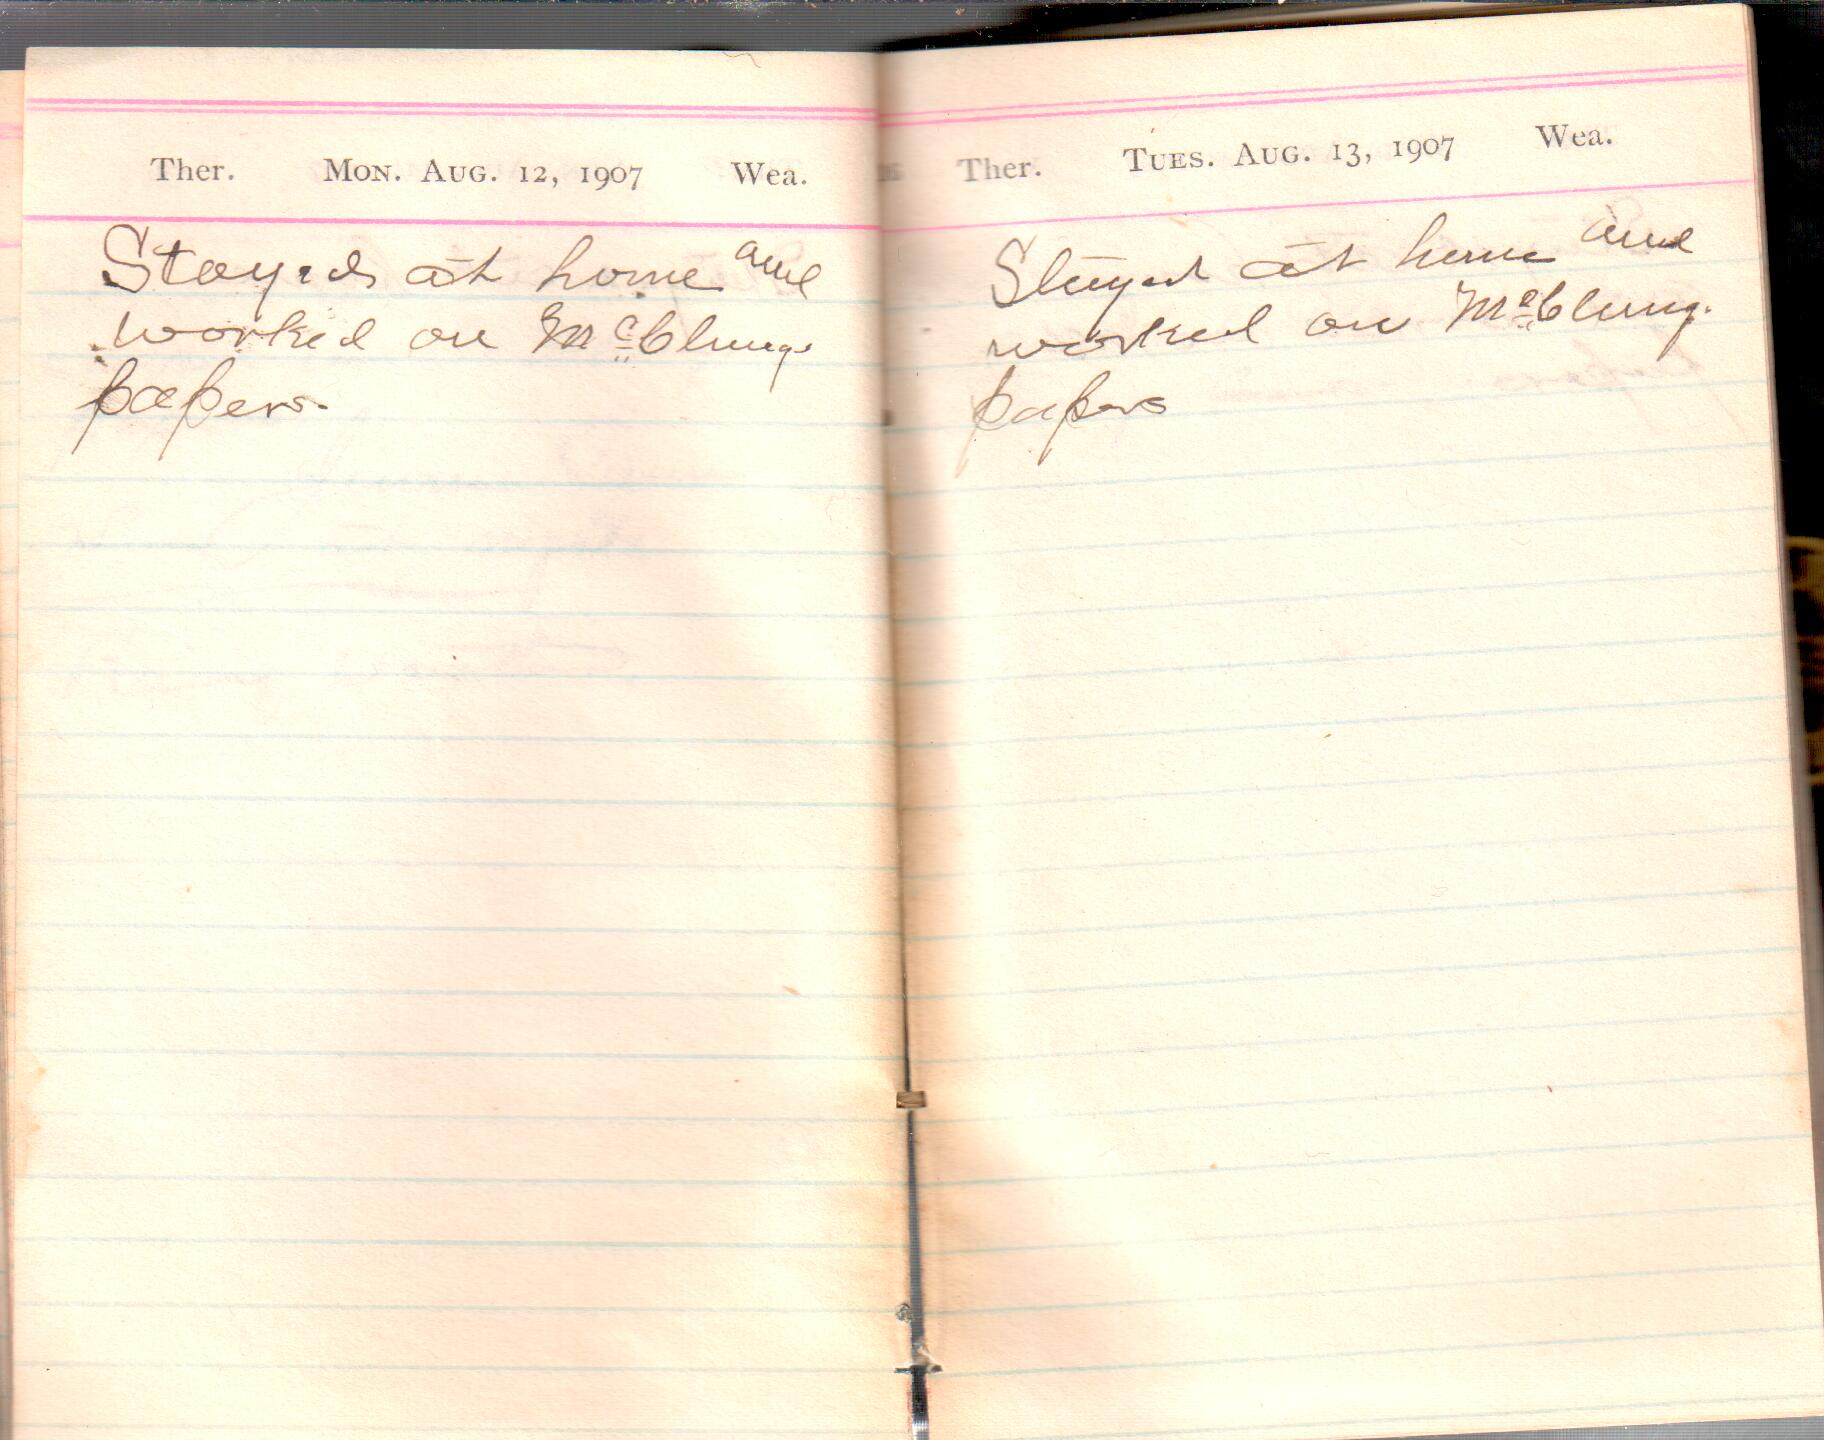 Ther. Mon. Aug. 12, 1907 Wea.
Stayed at home and
worked on McClung
papers.
Ther. Tues. Aug. 13, 1907 Wea.
Stayed at home and
worked on McClung
papers